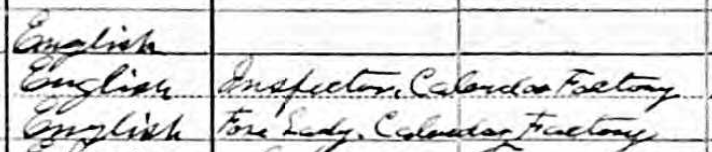 English
English Inspector, Calendar Factory
English Fore Lady, Calendar Factory